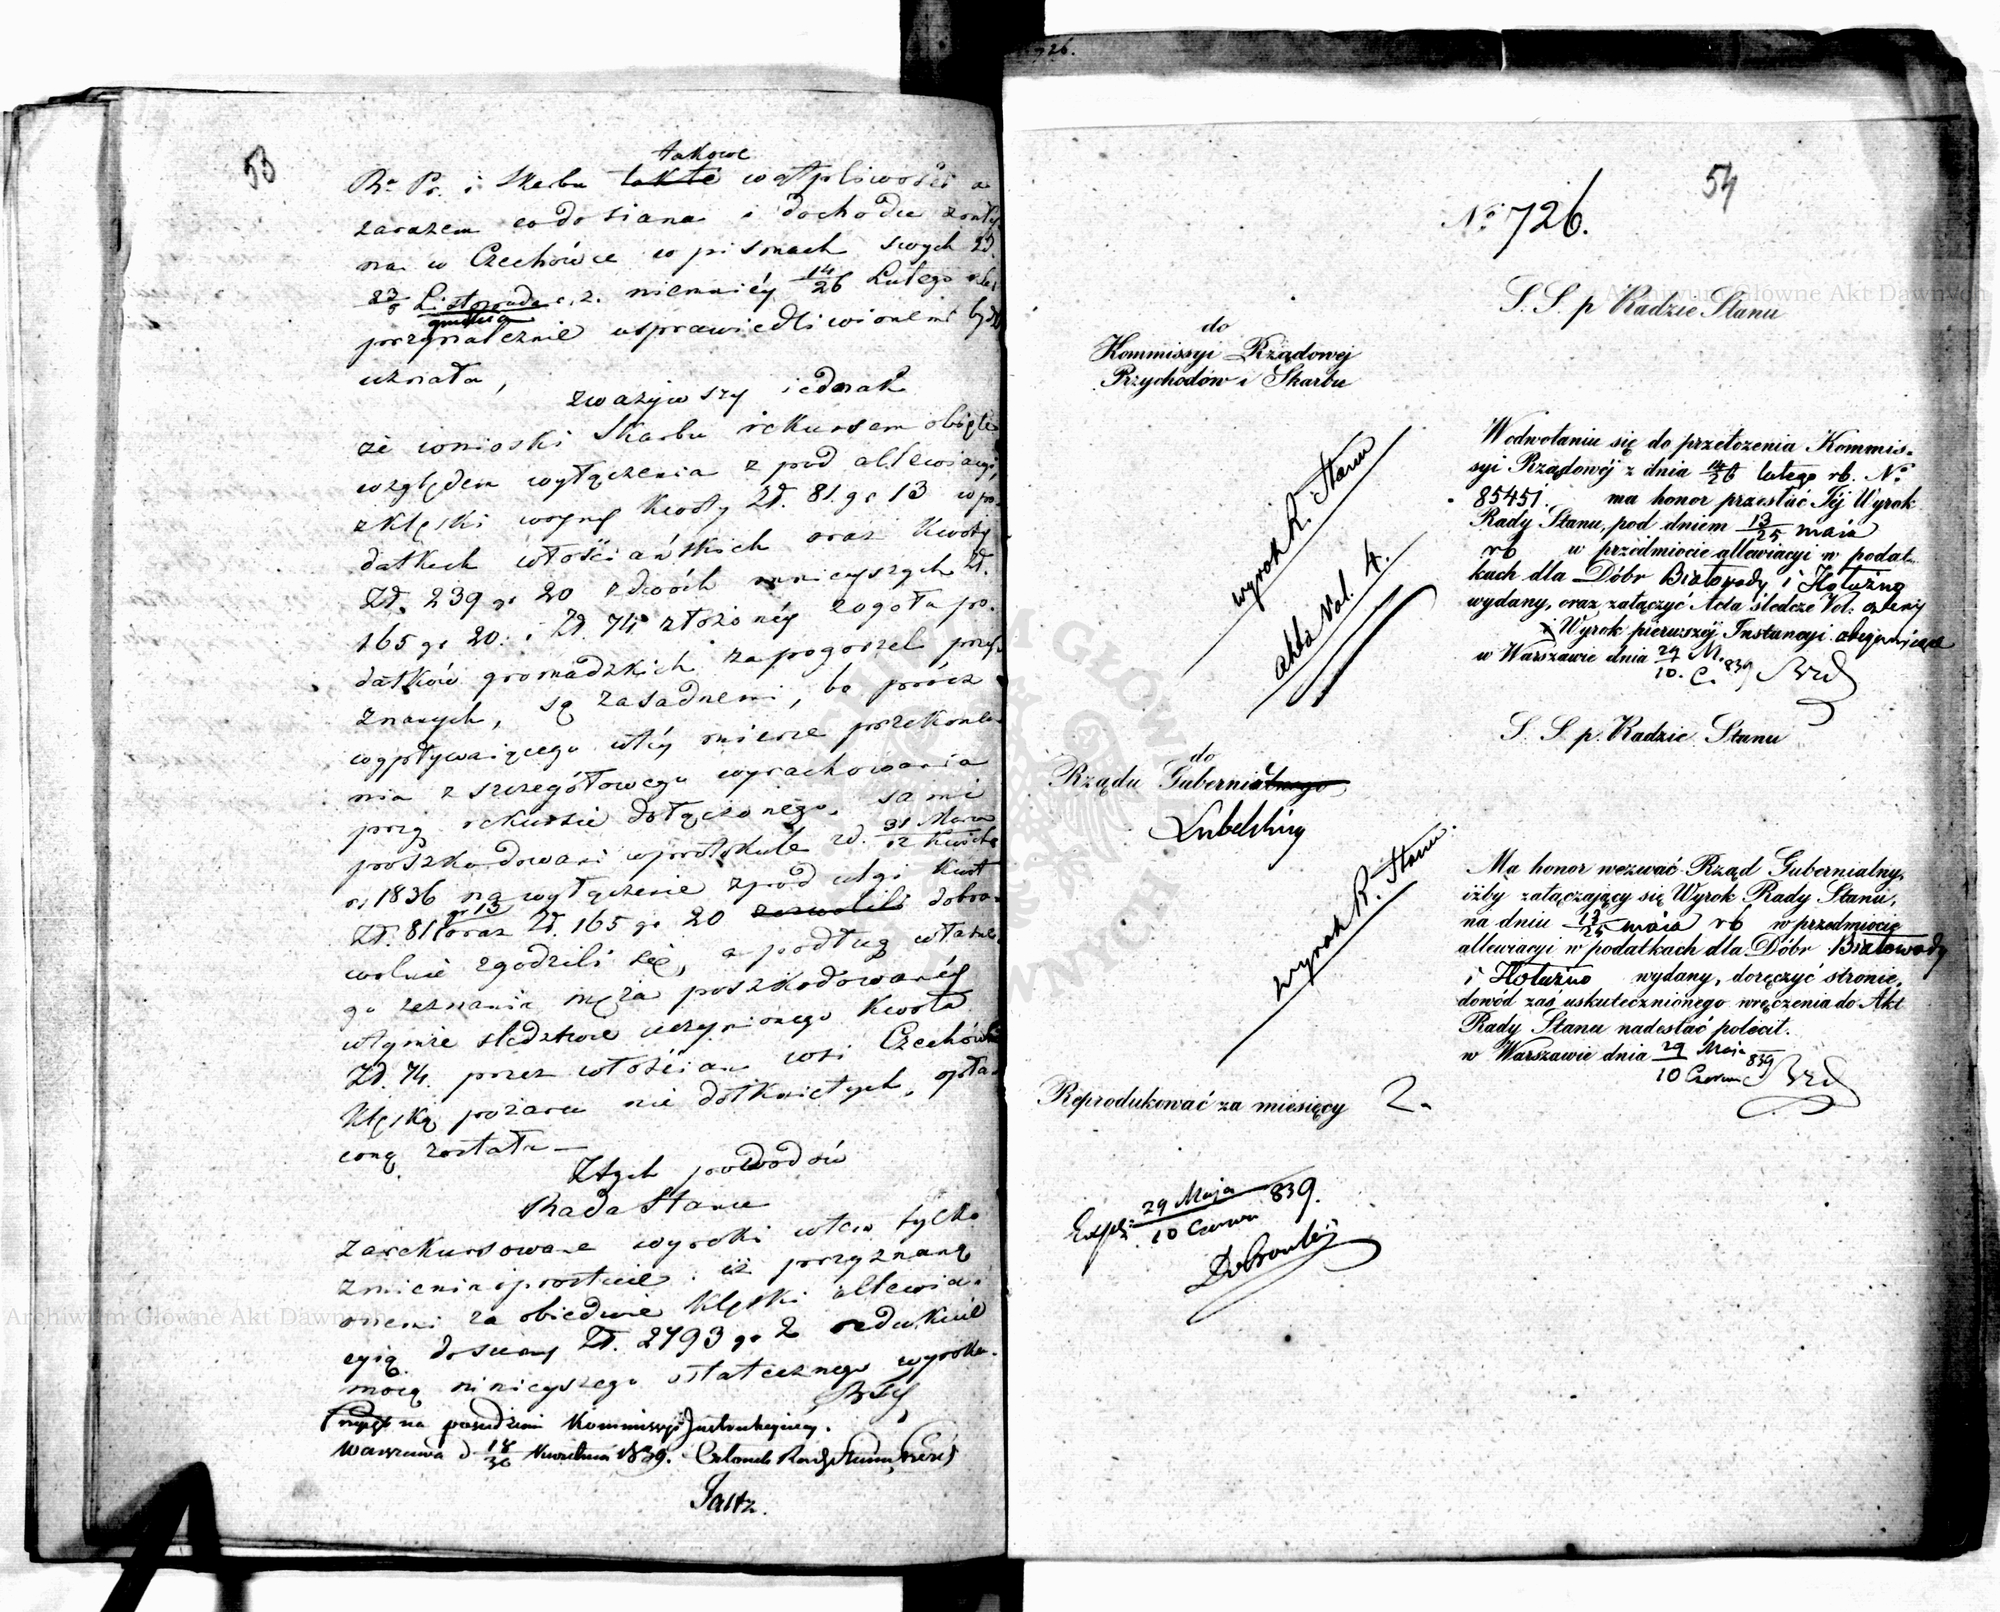 53
takowe
Ra Pr. i Skarbu takte wątpliwości a
zarazem co do siana i dochodu
na w Czechówce w pismach swych zd.
Listopada
grudnia
r. z. niemniej 14/26 Lutego
uznała,
zważywszy jednak
że wnioski Skarbu rekursem objęte
względem wyłączenia z pod allewiacyi
z klęski wojny kwoty Zł. 81 gr 13 w po-
datkach włościańskich oraz kwoty
Zł. 239 gr 20 z dwóch mnieyszych Zł.
165 gr 20. i Zł. 74 złożonéy
datków gromadzkich za pogorzel
znanych, są zasadnemi, bo prócz
wypływaiącego w téy mierze przekona-
nia z szczegółowego wyrachowania
przy rekursie dołączonego, sami
poszkodowani w protokule zd. 31 Marca
12 Kwietn
r. 1836 na wyłączenie z pod ulgi kwot
gr 13
Zł. 81 oraz Zł. 165 gr 20 zezwolili dobro-
wolnie zgodzili się, a podług własne-
go zeznania męża poszkodowanéy
w tymże śledztwie uczynionego kwota
Zł. 74. przez włościan wsi Czechówki
klęską pożaru nie dotkniętych, opła-
coną została —
Z tych powodów
Rada Stanu
zarekursowane wyroki w tem tylko
zmienia i prostuie: iż przyznaną
niemi za obiedwie klęski allewia-
cyią do sumy Zł. 2793 gr 2 redukuie
mocą ninieyszego ostatecznego wyroku.
na posiedzeniu Kommissyi Instrukcyiney.
Warszawa d 18/30 Kwietnia 1839. Członek Rady Stanu Prezes
726.
54
No 726.
S. S. p Radzie Stanu
do
Kommissyi Rządowej
Przychodów i Skarbu
W odwołaniu się do przełożenia Kommis-
syi Rządowéj z dnia 14/26 lutego rb. No
85451. ma honor przesłać Jéj Wyrok
Rady Stanu, pod dniem 13/25 maia
rb w przedmiocie allewiacyi w podat-
kach dla Dóbr Białowody i Hołużno
wydany, oraz załączyć Acta śledcze Vol: cztery
i Wyrok pierwszéj Instancyi obejmujące
w Warszawie dnia 29 M./10. C. 839
wyrok R. Stanu
akta Vol. 4.
S. S. p. Radzie Stanu
do
Rządu Gubernialnego
Lubelskiey
wyrok R. Stanu
Ma honor wezwać Rząd Gubernialny,
iżby załączający się Wyrok Rady Stanu,
na dniu 13/25 maia rb w przedmiocie
allewiacyi w podatkach dla Dóbr Białowody
i Hołużno wydany, doręczyć stronie,
dowód zaś uskutecznionego wręczenia do Akt
Rady Stanu nadesłać polécił.
w Warszawie dnia 29 Maja/10 Czerwca 839
Reprodukować za miesięcy 2.
Exp: 29 Maja/10 Czerwca 839.
Archiwum Główne Akt Dawnych
Archiwum Główne Akt Dawnych